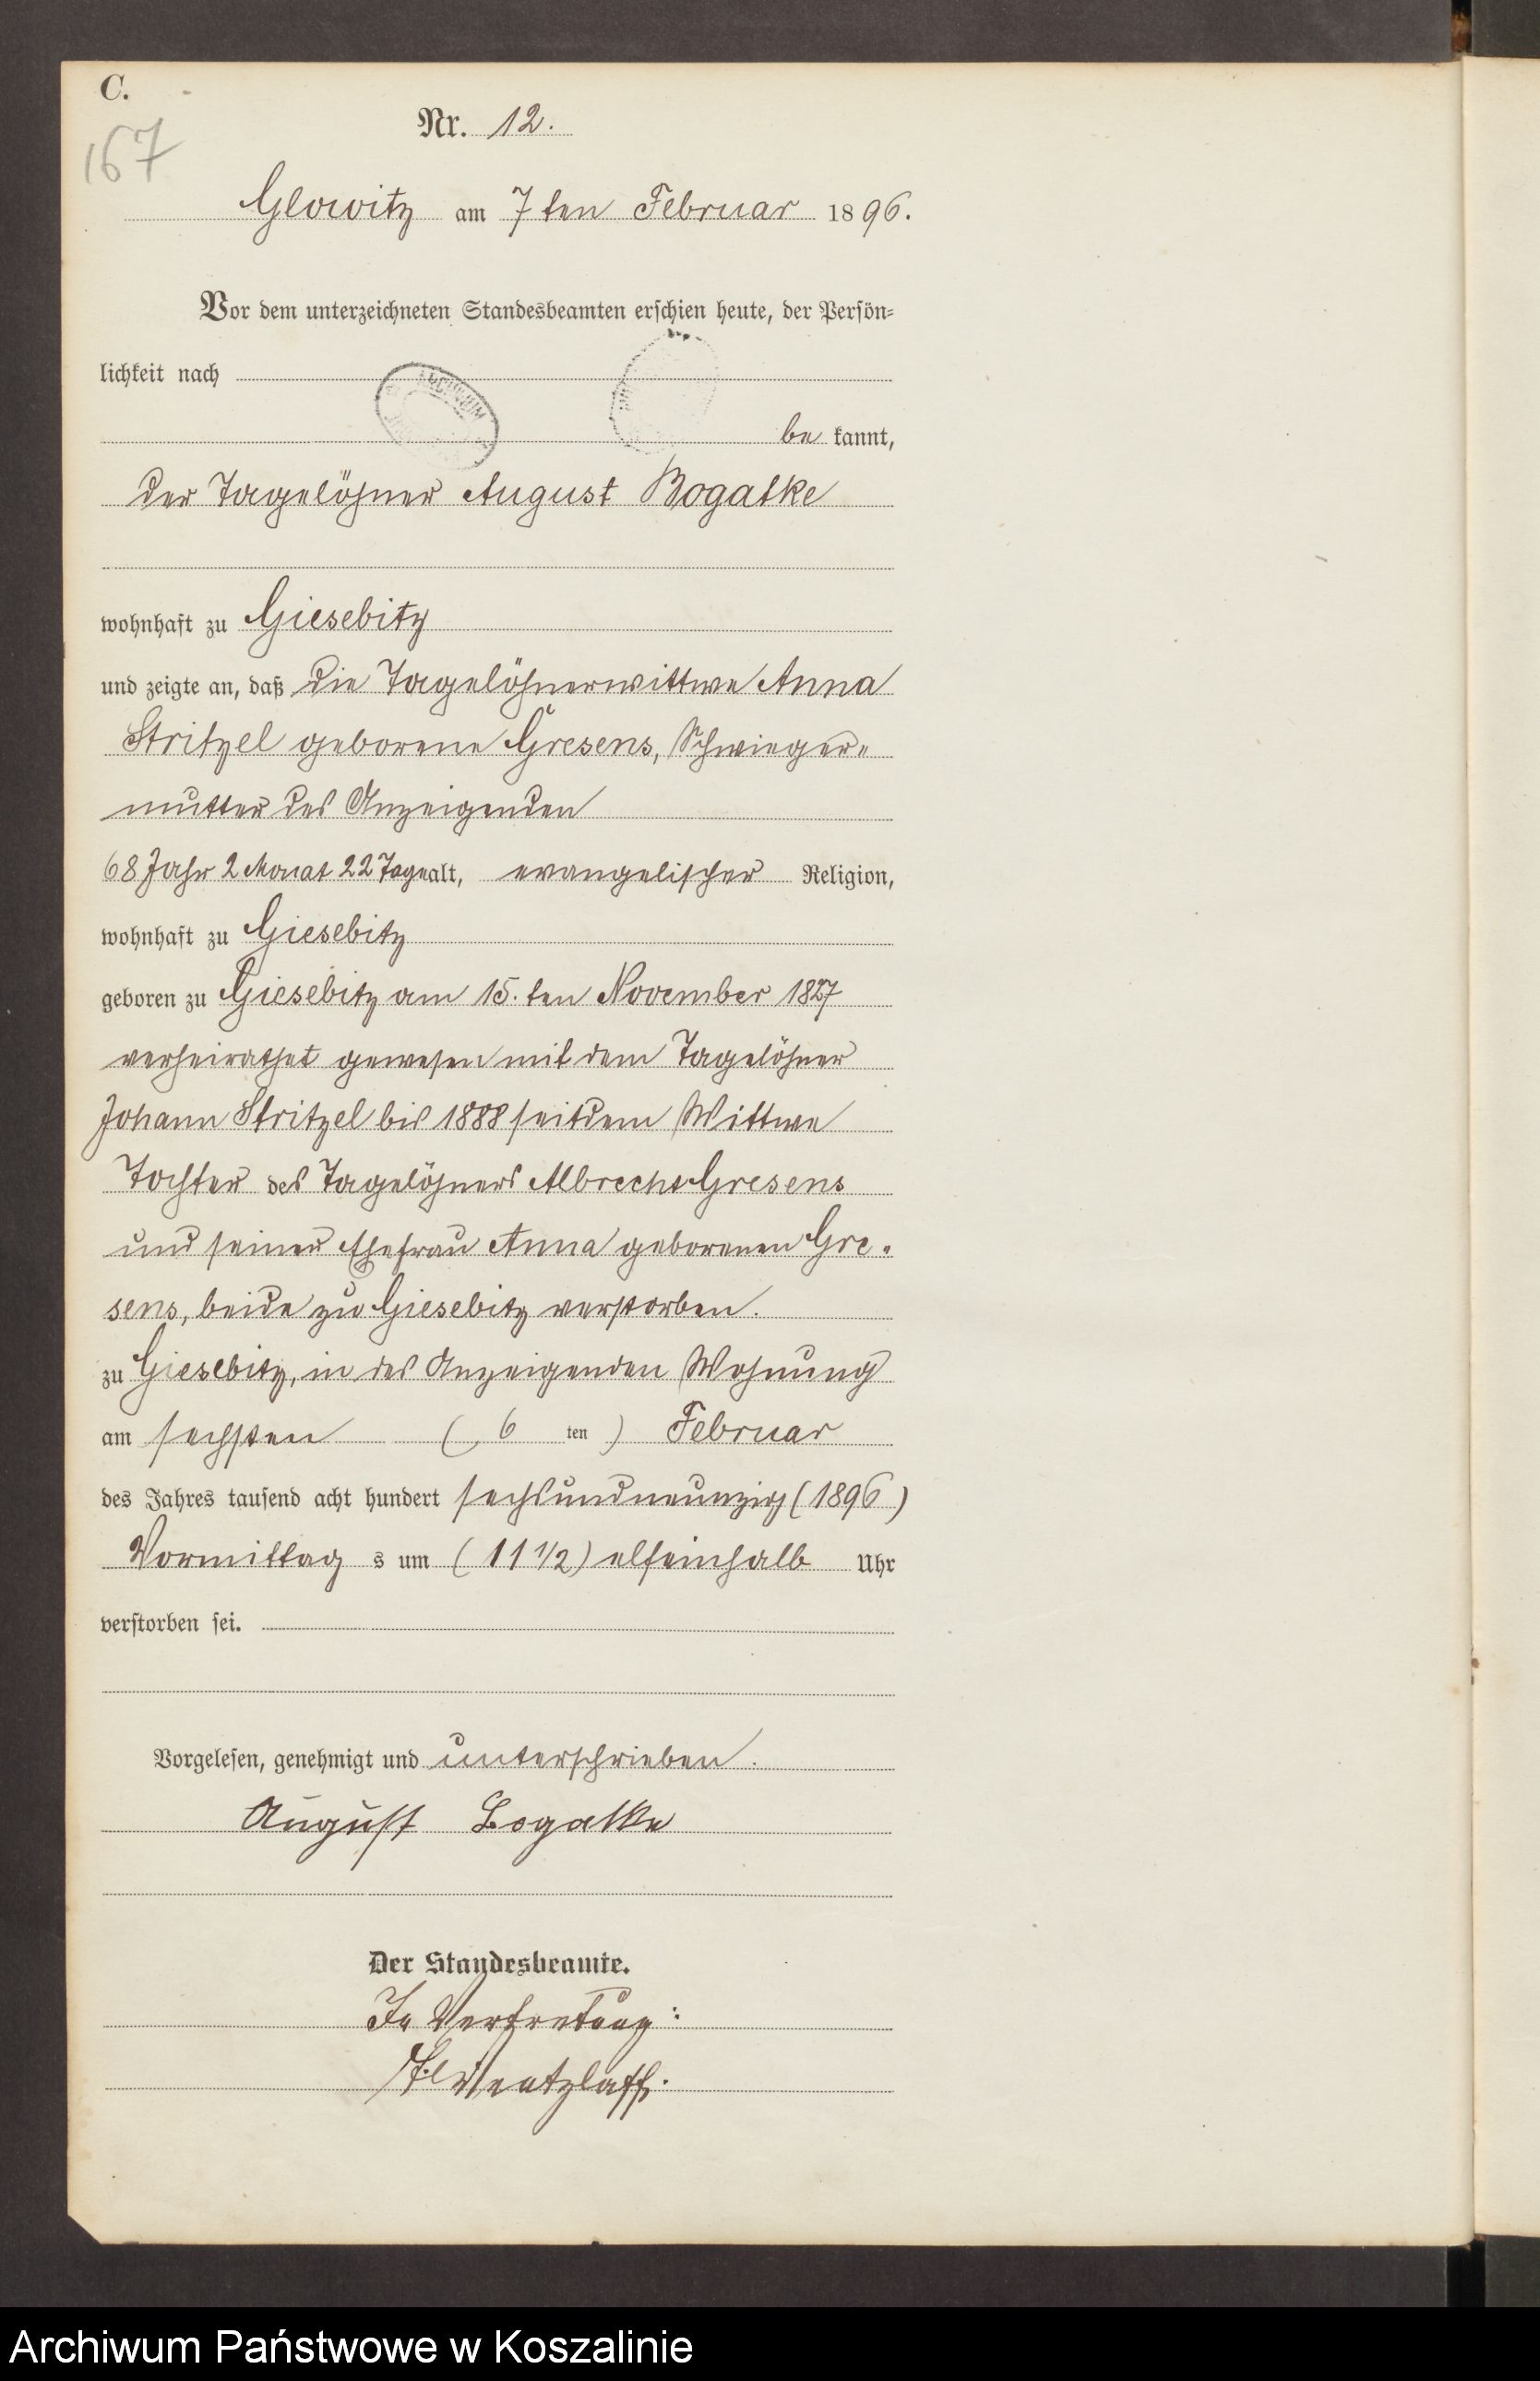 C.
167
Nr. 12.
Glowitz am 7ten Februar 1896.
Vor dem unterzeichneten Standesbeamten erschien heute, der Persön=
lichkeit nach
ARCHIWUM
be kannt,
der Tagelöhner August Bogatke
wohnhaft zu Giesebitz
und zeigte an, daß die Tagelöhnerwittwe Anna
Stritzel geborene Gresens, Schwieger=
mutter des Anzeigenden
68 Jahr 2 Monat 22 Tage alt, evangelischer Religion,
wohnhaft zu Giesebitz
geboren zu Giesebitz am 15. ten November 1827
verheirathet gewesen mit dem Tagelöhner
Johann Stritzel bis 1888 seitdem Wittwe
Tochter des Tagelöhners Albrecht Gresens
und seiner Ehefrau Anna geborenen Gre=
sens, beide zu Giesebitz verstorben.
zu Giesebitz, in des Anzeigenden Wohnung
am sechsten ( 6 ten ) Februar
des Jahres tausend acht hundert sechsundneunzig (1896)
Vormittag s um (11 1/2) elfeinhalb Uhr
verstorben sei.
Vorgelesen, genehmigt und unterschrieben.
August Bogatke
Der Standesbeamte.
In Vertretung:
Wentzlaff.
Archiwum Państwowe w Koszalinie